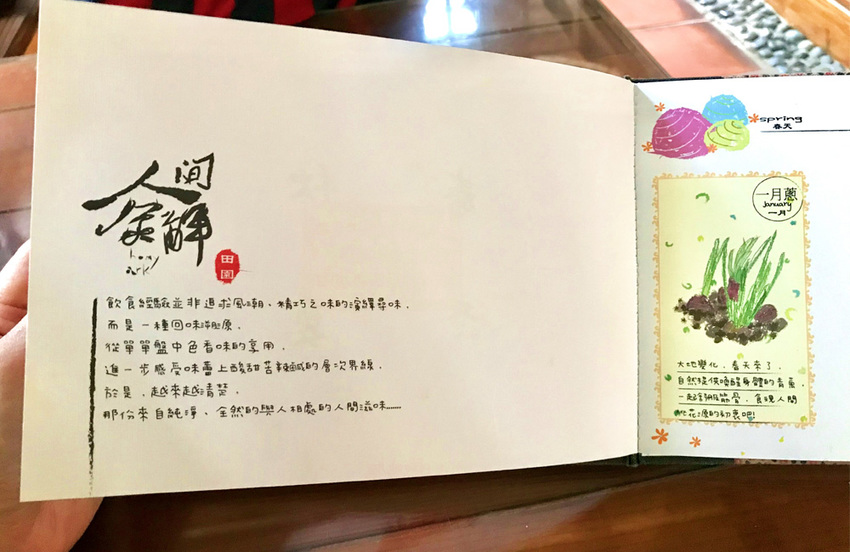 人間
解
田園
飲食經驗並非追求風潮、精巧之味的演繹尋味.
而是一種回味溯原.
從單單盤中色香味的享用.
進一步感受味蕾上酸甜苦辣鹹的層次界線.
於是.越來越清楚.
那份來自純淨、全然的與人相處的人間滋味……
spring
春天
一月蔥
january
一月
大地變化.春天來了.
自然提供喚醒身體的青蔥.
一起舒展筋骨.食現人間
桃花源的初衷吧!